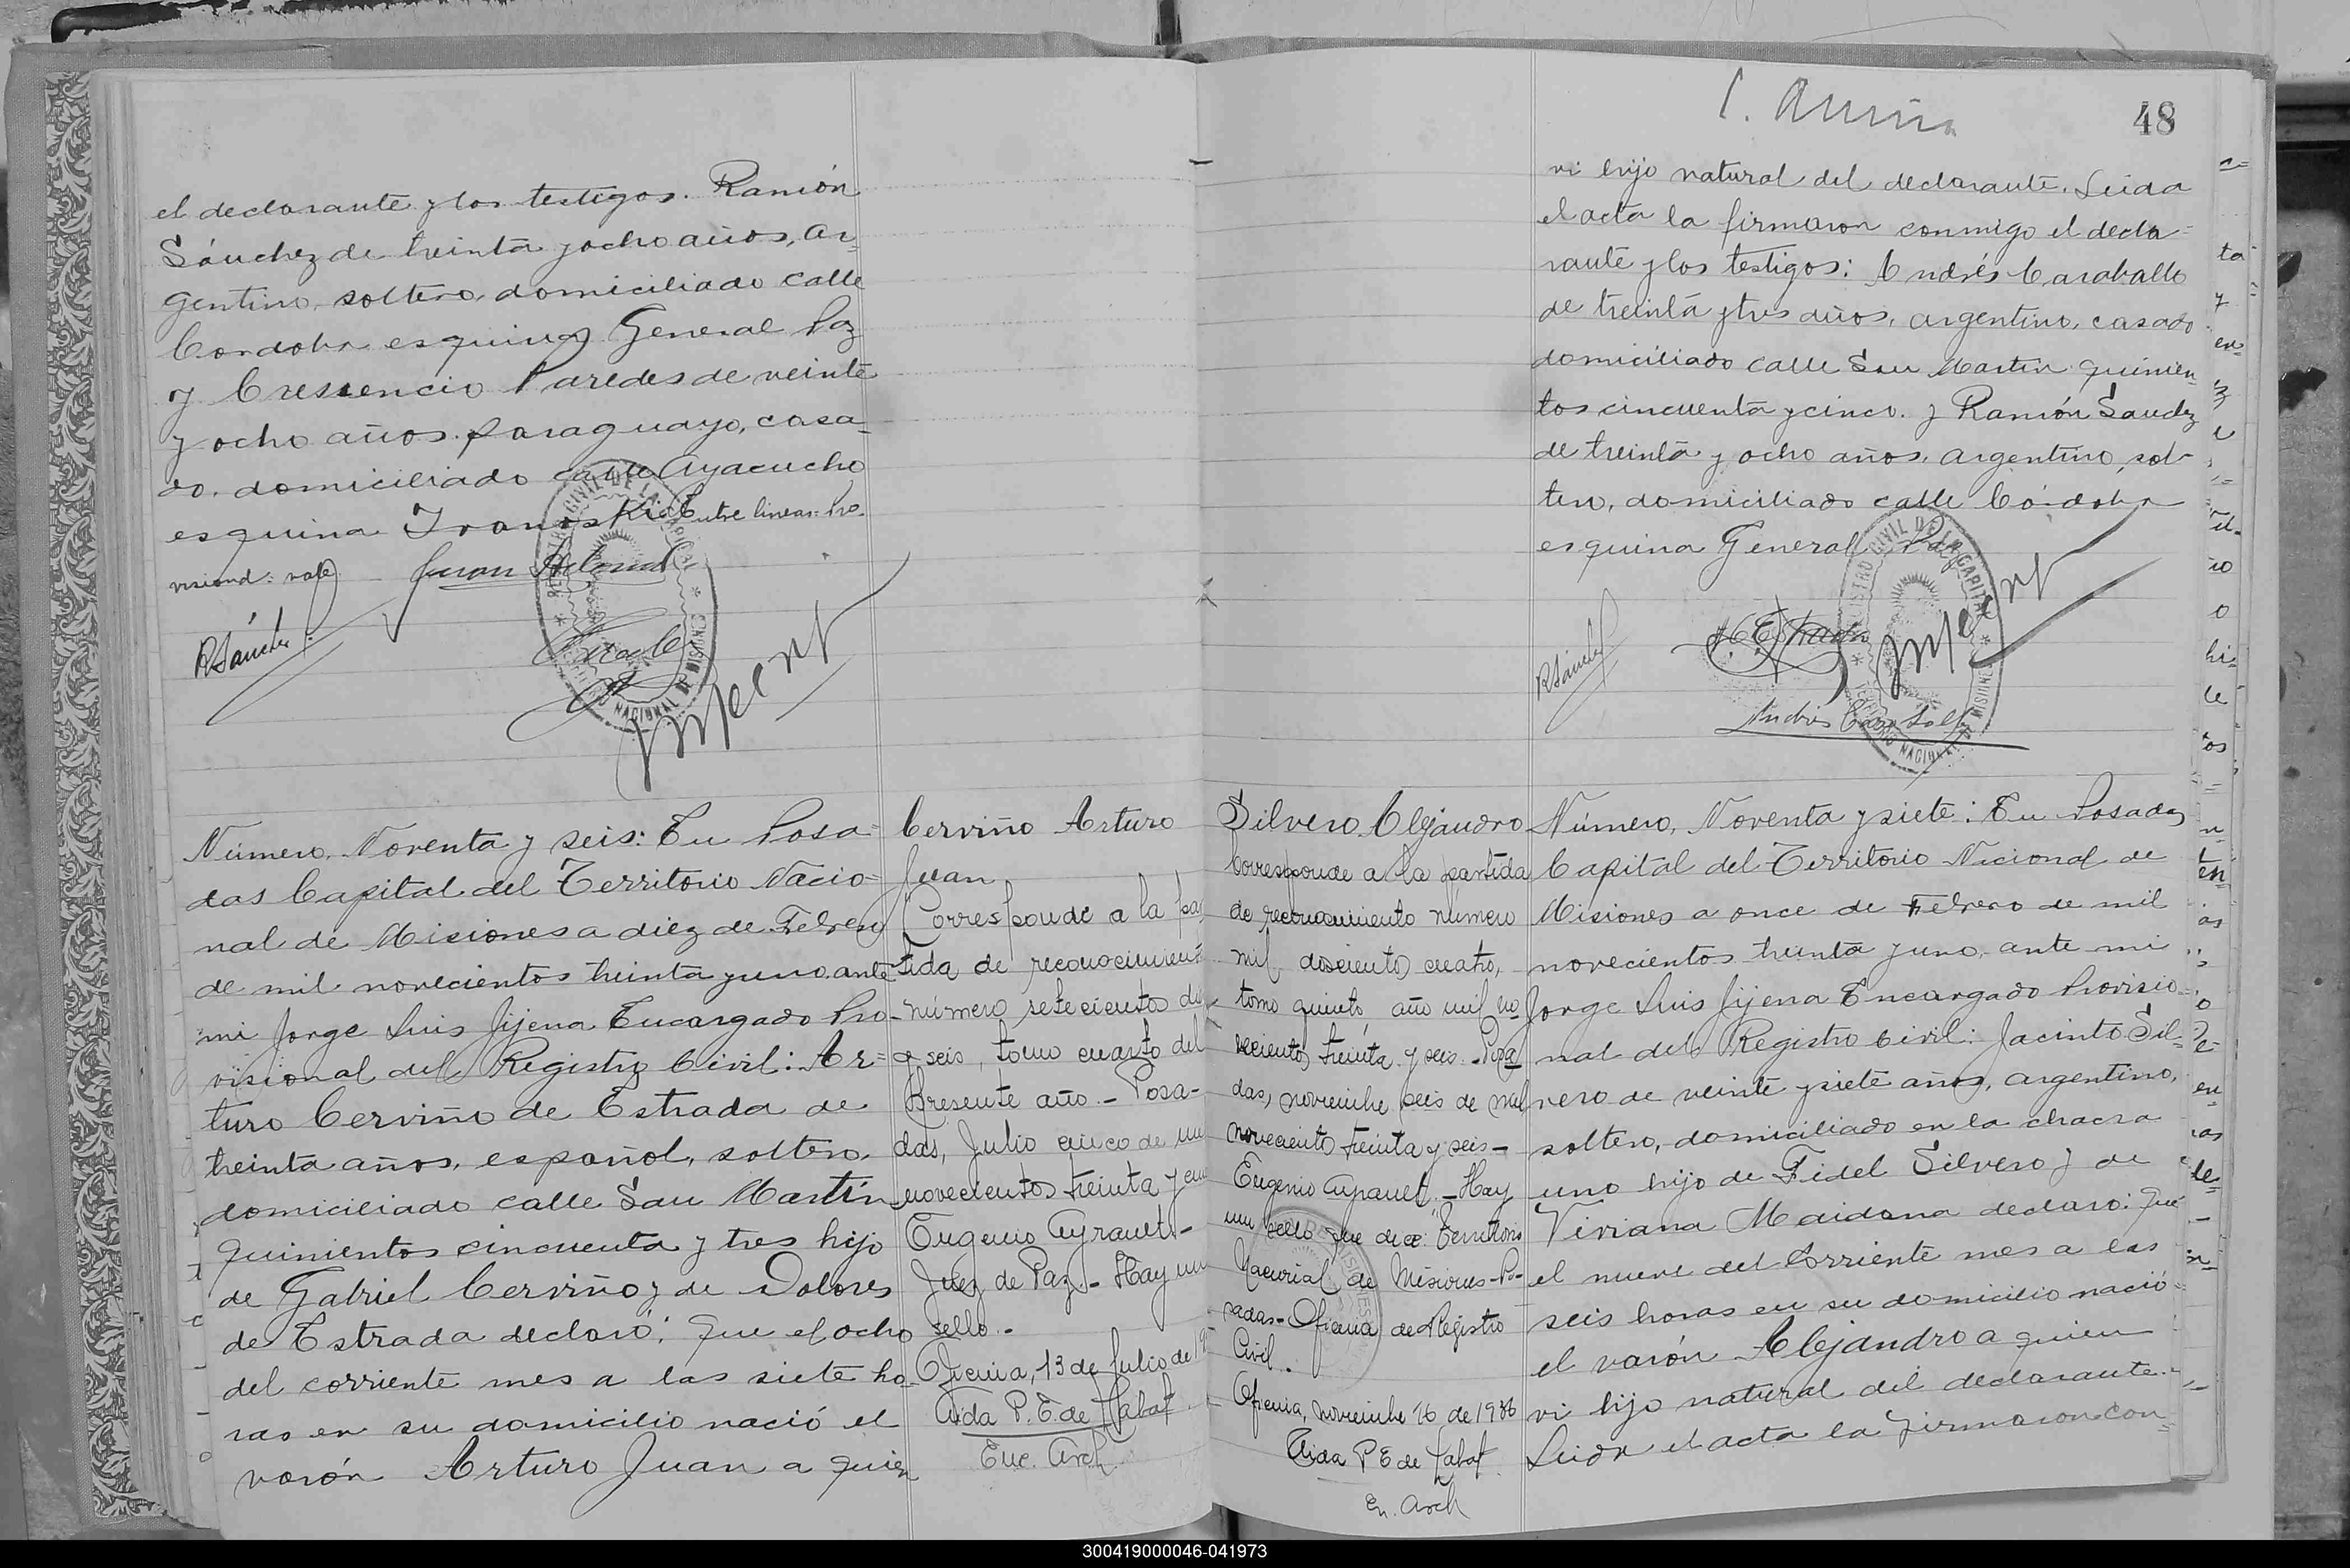 el declarante y los testigos. Ramón
Sánchez de treinta y ocho años, ar=
gentino, soltero, domiciliado calle
Córdoba esquina General Paz
y Cressencio Paredes de veinte
y ocho años. paraguayo, casa=
do. domiciliado calle Ayacucho
esquina Entre lineas: Pro-
visional: vale
RSánchez
Número, Noventa y seis: En Posa=
das Capital del Territorio Nacio=
nal de Misiones a diez de Febrero
de mil novecientos treinta y uno, ante
mi Jorge Luis Jijena Encargado Pro-
visional del Registro Civil: Ar=
turo Cerviño de Estrada de
treinta años, español, soltero,
domiciliado calle San Martín
quinientos cincuenta y tres hijo
de Gabriel Cerviño y de Dolores
de Estrada declaró: Que el ocho
del corriente mes a las siete ho-
ras en su domicilio nació el
varón Arturo Juan a quien
Cerviño Arturo
Juan
Corresponde a la par
tida de reconocimient
número setecientos
y seis, tomo cuarto del
Presente año. - Posa-
das, Julio cinco de
novecientos treinta y
Eugenio Ayrault -
Juez de Paz. - Hay un
sello. -
Oficina, 13 de Julio de 19
Aida P. E. de Labat
Enc. Arch.
48
vi hijo natural del declarante. Leida
el acta la firmaron conmigo el decla=
rante y los testigos: Andrés Caraballo
de treinta y tres años, argentino, casado
domiciliado calle San Martin quinien-
tos cincuenta y cinco. y Ramón Sanchez
de treinta y ocho años, argentino, sol-
tero, domiciliado calle Córdoba
esquina General Paz
RSánchez
Andrés Caraballo
Silvero Alejandro
Corresponde a la partida
de reconocimiento número
mil doscientos cuatro,
tomo quinto, año mil no
vecientos treinta y seis. - Posa
das, noviembre seis de mil
novecientos treinta y seis -
Eugenio Ayrault. - Hay
un sello que dice: Territorio
Nacional de Misiones - Po-
sadas - Oficina de Registro
Civil.
Oficina, noviembre 16 de 1936
Aida P E de Labat
En. Arch
Número, Noventa y siete: En Posadas
Capital del Territorio Nacional de
Misiones a once de Febrero de mil
novecientos treinta y uno, ante mi
Jorge Luis Jijena Encargado Provisio=
nal del Registro Civil: Jacinto Sil=
vero de veinte y siete años, argentino,
soltero, domiciliado en la chacra
uno hijo de Fidel Silvero y de
Viviana Maidana declaro: Que
el nueve del corriente mes a las
seis horas en su domicilio nació=
el varón Alejandro a quien
vi hijo natural del declarante.
Leida el acta la firmaron con=
300419000046-041973